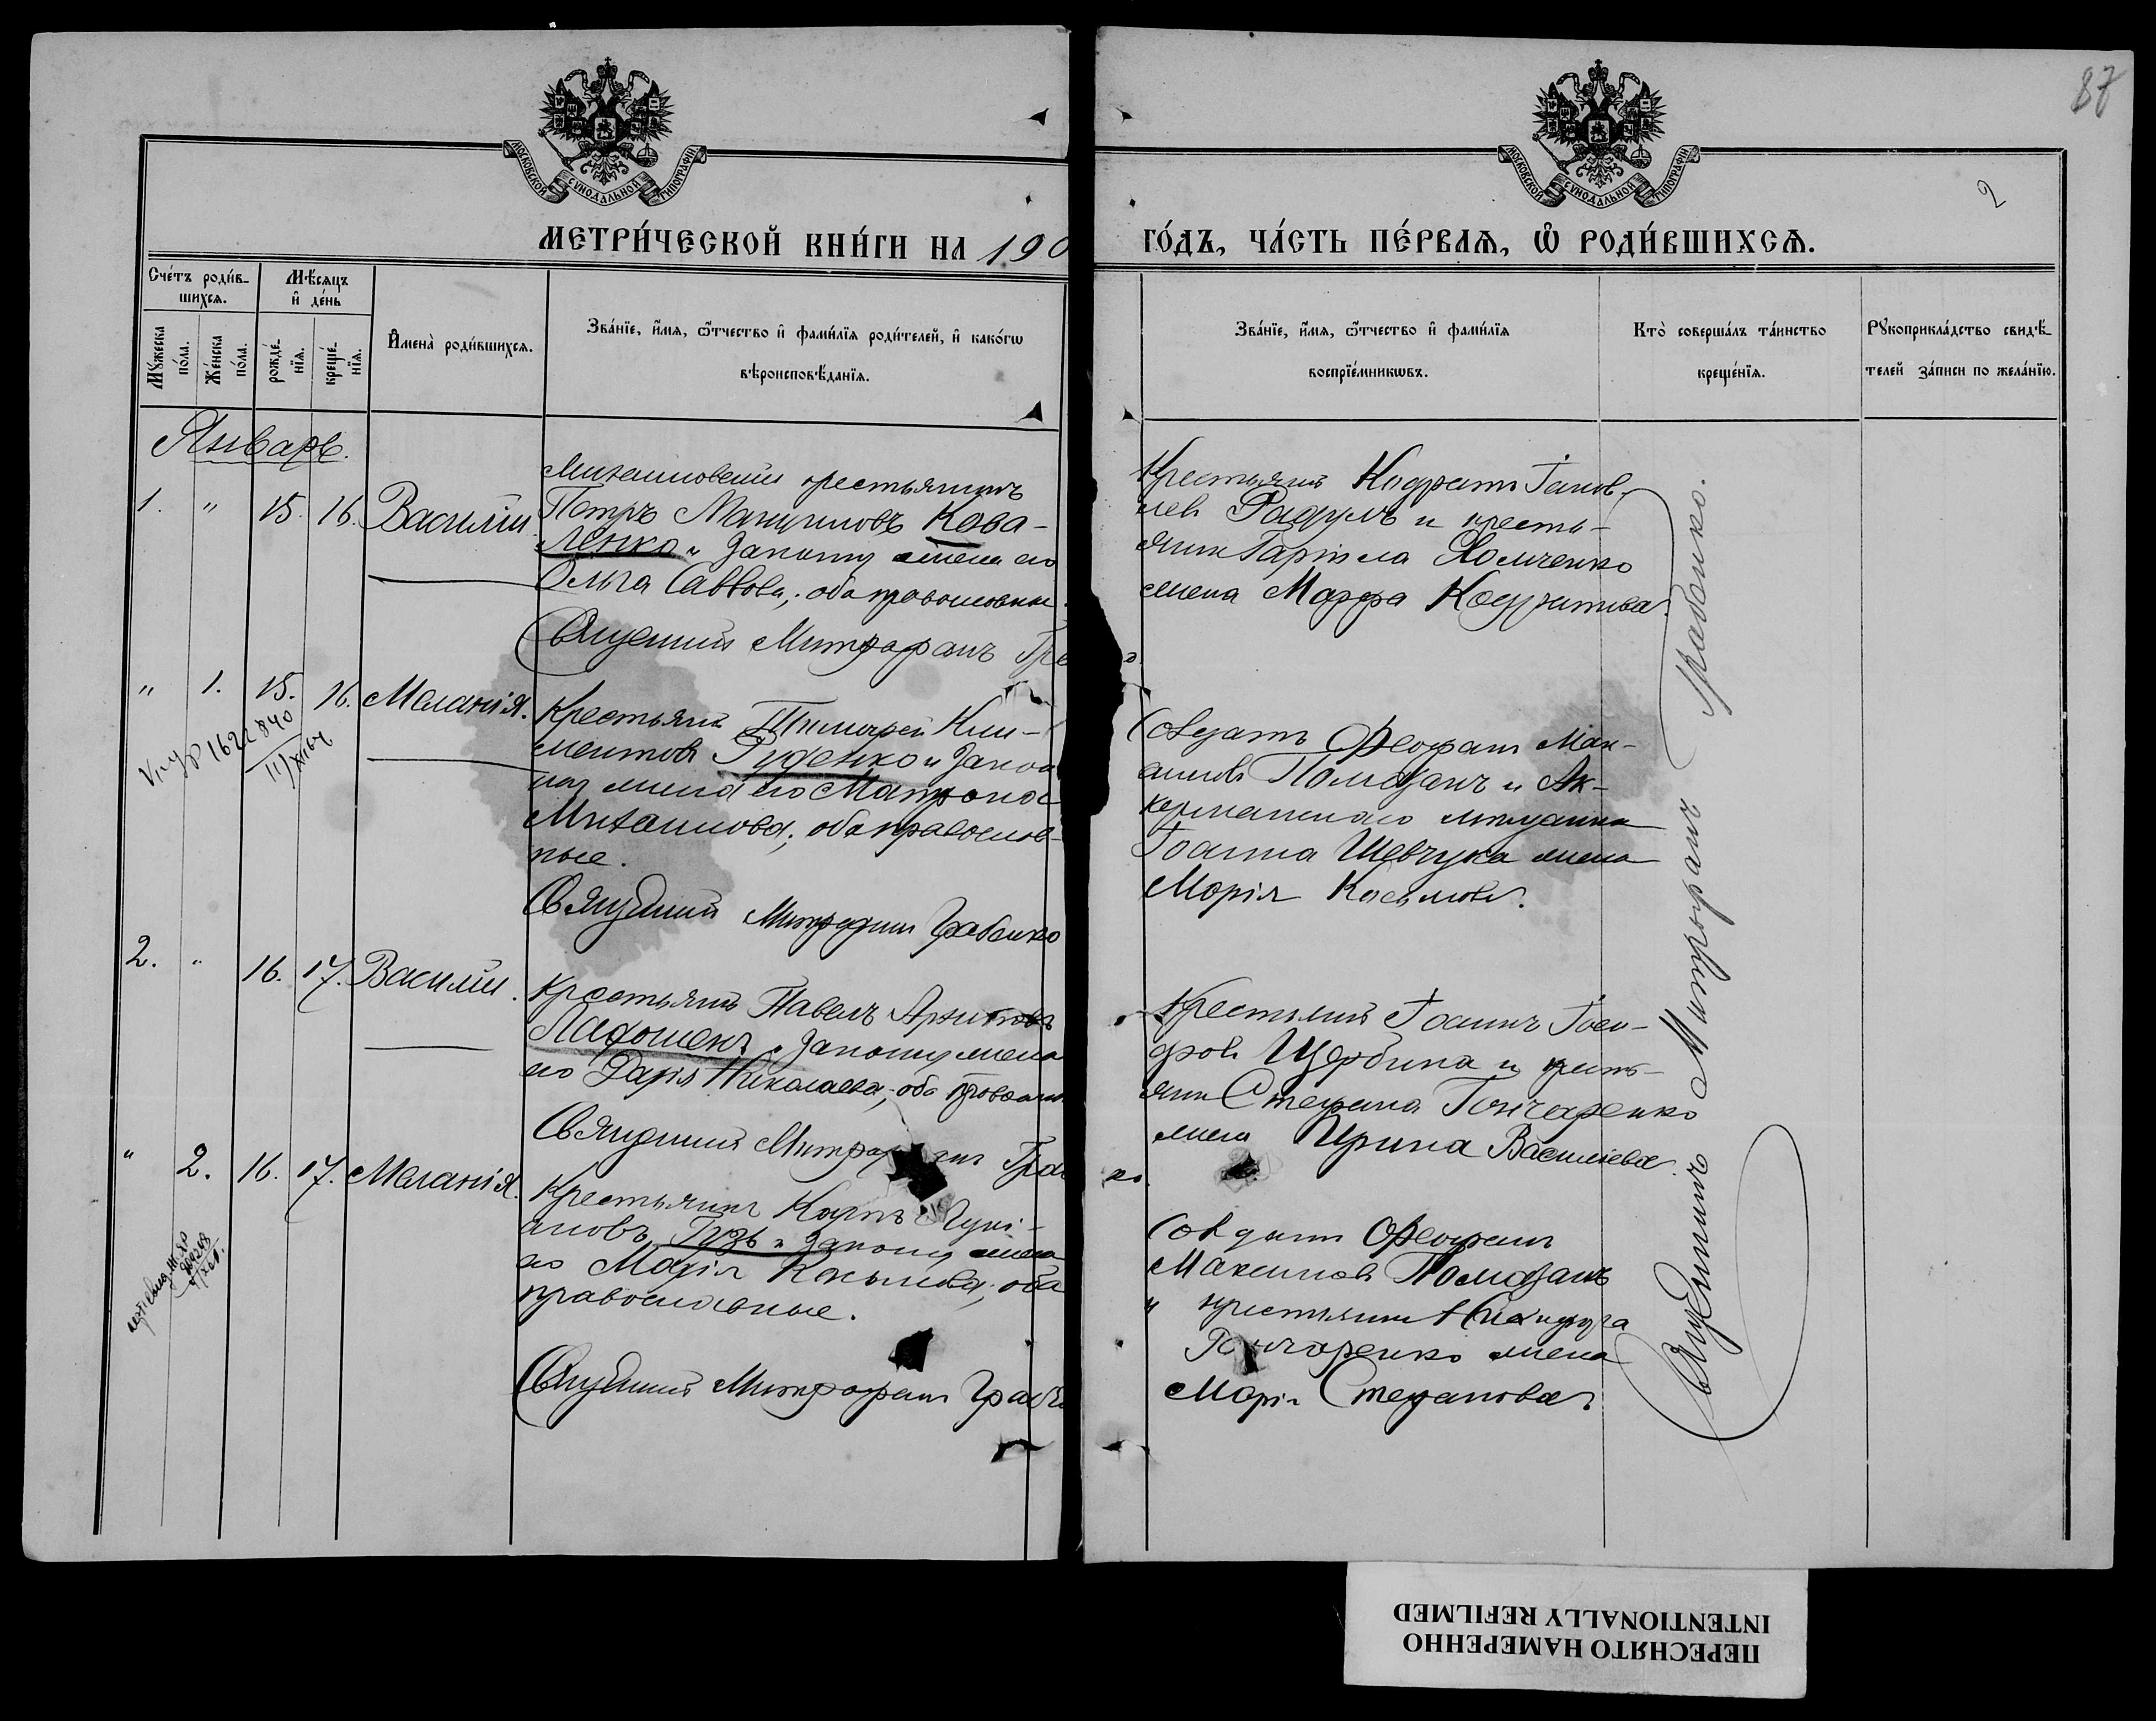 87
2
МОСКОВСКОЙ СѴНОДАЛЬНОЙ ТИПОГРАФІИ
МОСКОВСКОЙ СѴНОДАЛЬНОЙ ТИПОГРАФІИ
МЕТРИ́ЧЕСКОЙ КНИ́ГИ НА 190
ГО́ДЪ, ЧА́СТЬ ПЕ́РВАЯ, Ѿ РОДИ́ВШИХСЯ.
Сче́тъ роди́в-
шихся.
Мѣ́сяцъ
и҆ де́нь
Мꙋ́жеска
по́ла.
Же́нска
по́ла.
рожде́-
нїя.
креще́-
нїя.
И҆мена̀ роди́вшихся.
Зва́нїе, и҆́мя, ѻ҆́тчество и҆ фами́лїя роди́телей, и҆ како́гѡ
вѣроисповѣ́данїя.
Зва́нїе, и҆́мя, ѻ҆́тчество и҆ фами́лїя
воспрїе́мникѡвъ.
Кто̀ соверша́лъ та́инство
креще́нїя.
Рꙋкоприкла́дство свидѣ́-
телей за́писи по жела́нїю.
Январь.
1. " 15. 16. Василій
крестьянинъ
Петръ Кова-
ленко и законная жена его
Ольга Саввова, оба православные.
Священникъ Митрофанъ Гра
Крестьянинъ Кодратъ Іаков-
левъ Радулъ и кресть-
янина Гавріила Хомченко
жена Марфа Кодратова.
" 1. 15. 16. Меланія.
1622840
Крестьянинъ Тимофей Кли-
ментовъ Руденко и закон-
ная жена его Матрона
Михаилова, оба православ-
ные.
Священникъ Митрофанъ Грабенко
Солдатъ Ѳеофанъ Мак-
симовъ Помазанъ и Ак-
керманскаго мещанина
Іоанна Шевчука жена
Марія Косьмова.
2. " 16. 17. Василій.
Крестьянинъ Павелъ Архиповъ
и законная жена
его Дарія Николаева, оба православные
Священникъ Митрофанъ Гра
Крестьянинъ Іоаннъ
Щербина и кресть-
янина Стефана Гончаренко
жена Ирина Василіева.
" 2. 16. 17. Меланія.
Крестьянинъ Карпъ Іулі-
ановъ Гузь и законная жена
его Марія Косьмова, оба
православные.
Священникъ Митрофанъ Грабе
Солдатъ Ѳеофанъ
Максимовъ Помазанъ
и крестьянина Никифора
Гончаренко жена
Марія Стефанова.
Священникъ Митрофанъ Грабенко.
ПЕРЕСНЯТО НАМЕРЕННО
INTENTIONALLY REFILMED